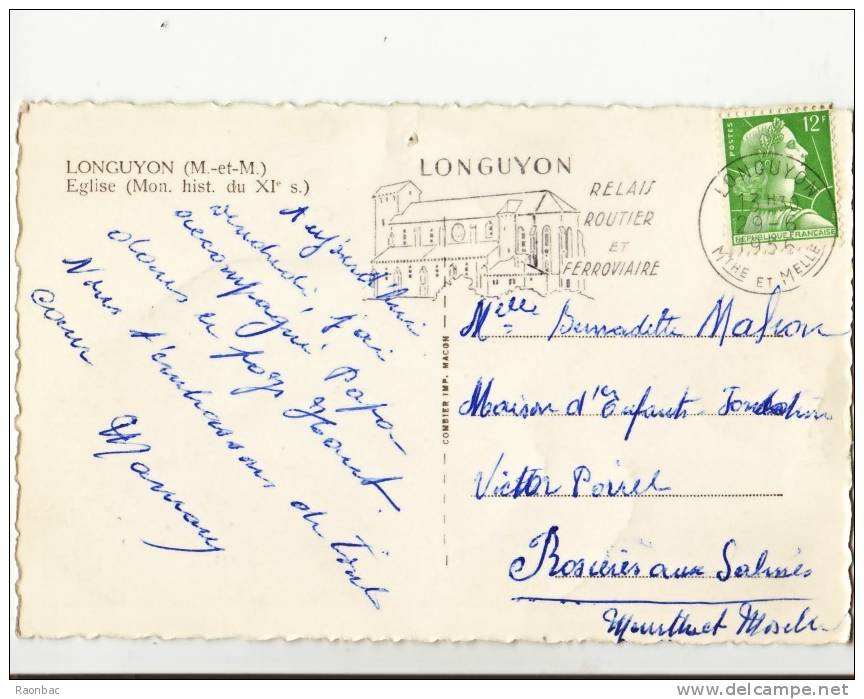 LONGUYON (M.-et-M.)
Eglise (Mon. hist. du XIe s.)
Aujourd'hui
vendredi, j'ai
accompagné Papa
dans le pays Haut.
Nous t'embrassons de tout
cœur
Maman
COMBIER IMP. MACON
LONGUYON
RELAIS
ROUTIER
ET
FERROVIAIRE
POSTES
12F
REPUBLIQUE FRANÇAISE
LONGUYON
13 H30
29-6
MTHE ET MELLE
Melle Bernadette
Maison d'Enfants Fondation
Victor Poirel
Rosières aux Salines
Meurthe et Moselle
Raonbac
www.delcampe.net